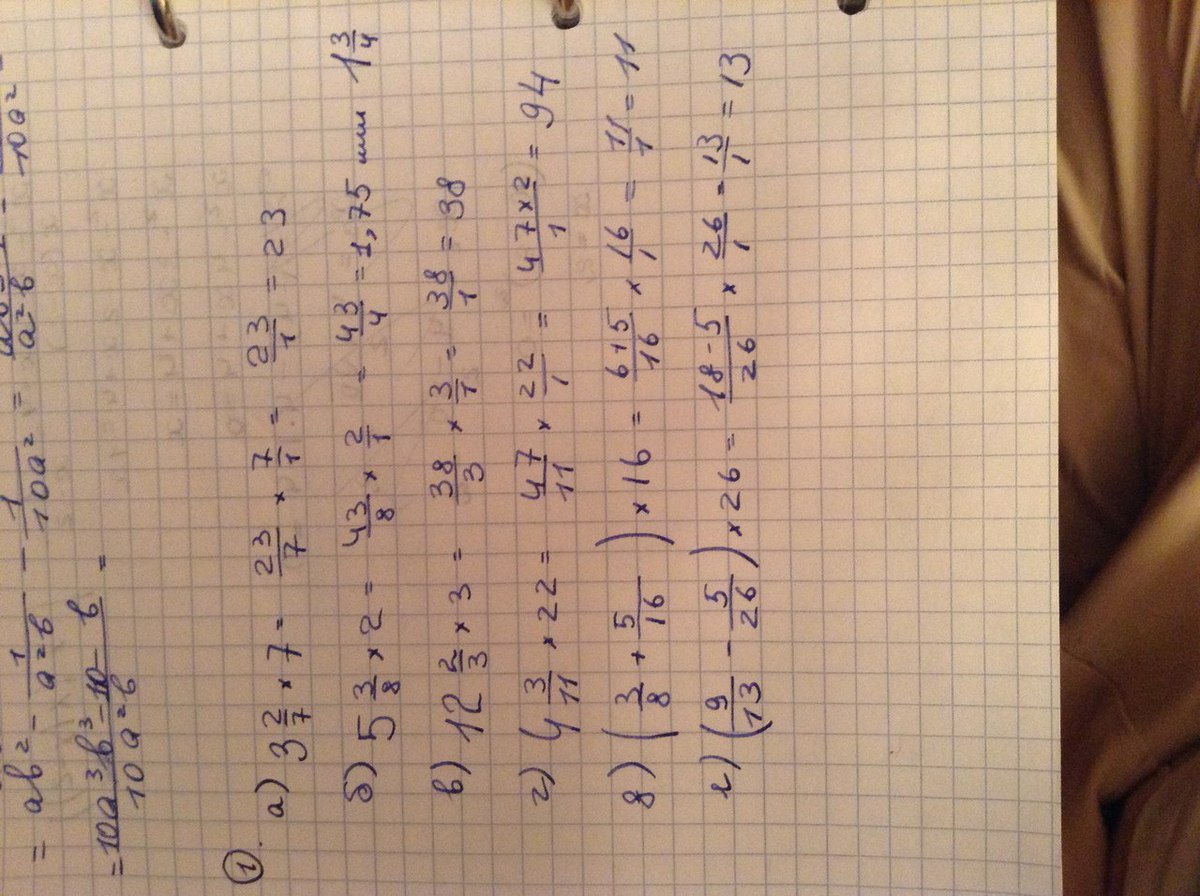 = ab² - 1/(a²b) - 1/(10a²) =
= (10a³b³ - 10 - b)/(10a²b) =
①.
а) 3 2/7 × 7 = 23/7 × 7/1 = 23/1 = 23
б) 5 3/8 × 2 = 43/8 × 2/1 = 43/4 = 1,75 или 1 3/4
в) 12 2/3 × 3 = 38/3 × 3/1 = 38/1 = 38
г) 4 3/11 × 22 = 47/11 × 22/1 = (47×2)/1 = 94
д) (3/8 + 5/16) × 16 = (6+5)/16 × 16/1 = 11/1 = 11
е) (9/13 - 5/26) × 26 = (18-5)/26 × 26/1 = 13/1 = 13